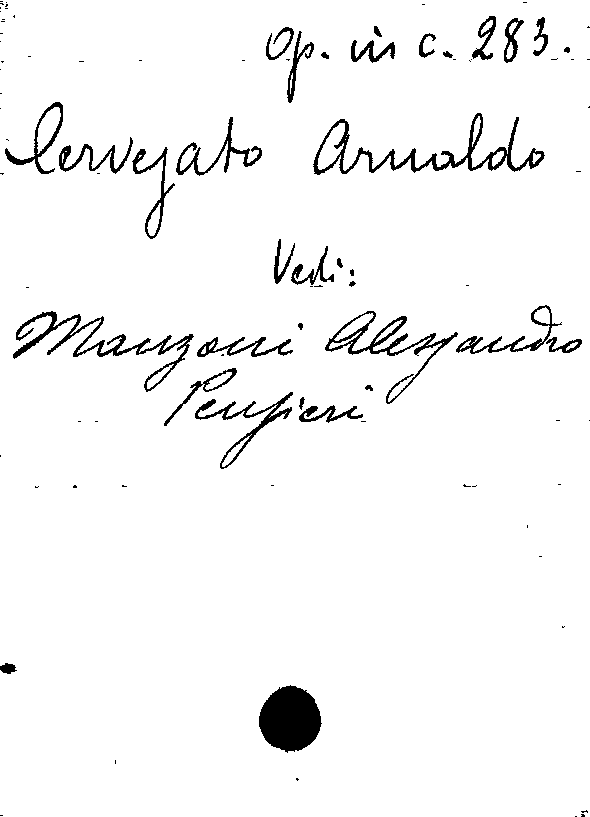 Op. in c. 283.
Cervesato Arnaldo
Vedi:
Manzoni Alessandro
Pensieri